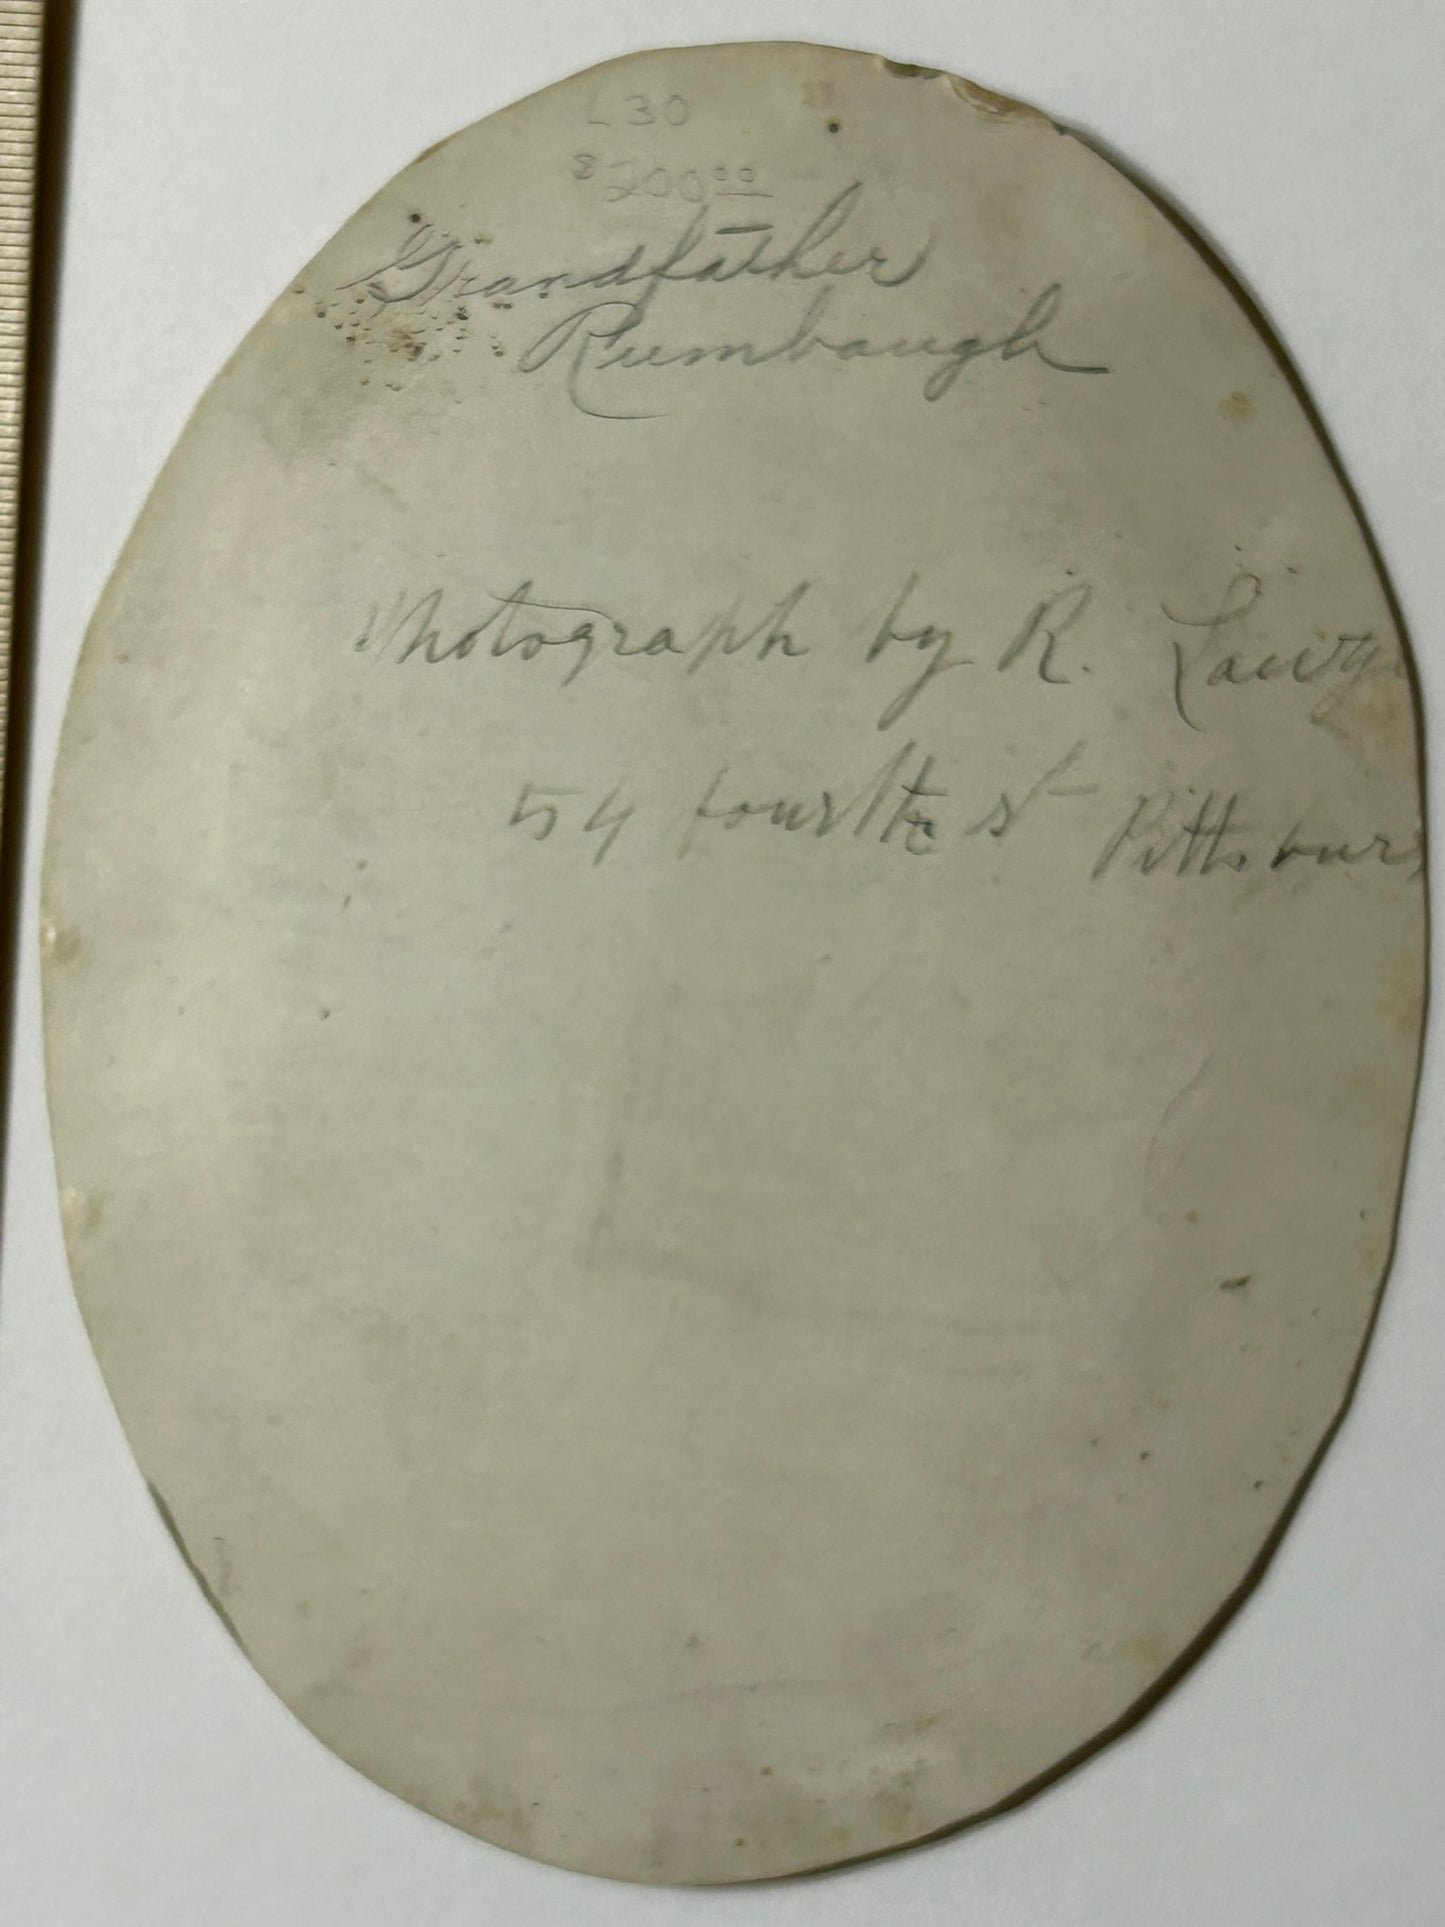 L30
$200.00
Grandfather
Rumbaugh
Photograph by R.
54 fourth st Pittsbur